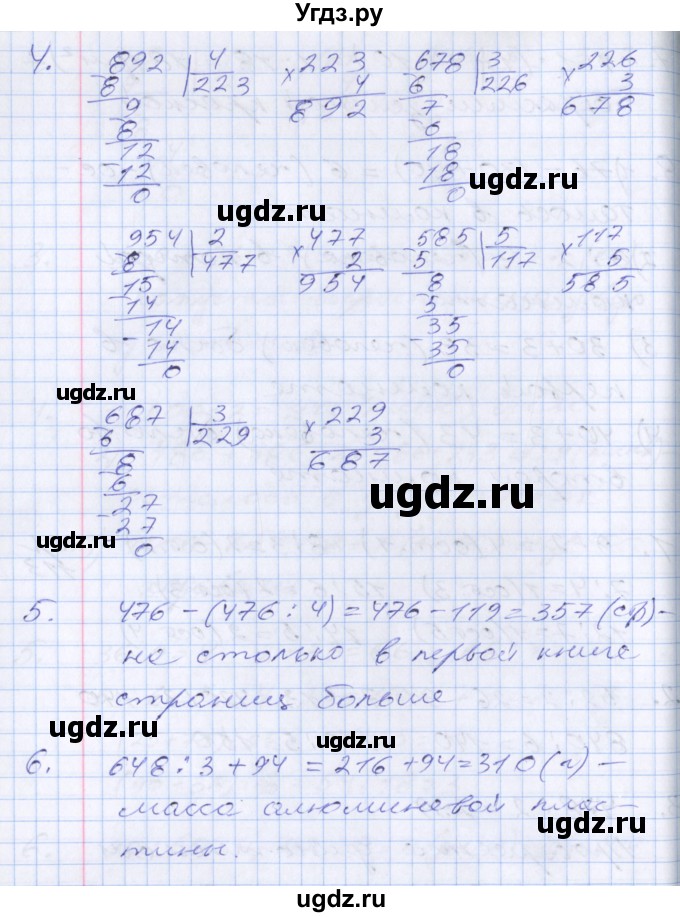 Угдз.ру
4.
892 | 4
8 223
9
8
12
12
0
× 223
4
892
678 | 3
6 226
7
6
18
18
0
× 226
3
678
ugdz.ru
ugdz.ru
954 | 2
8 477
15
14
14
14
0
× 477
2
954
585 | 5
5 117
8
5
35
35
0
× 117
5
585
ugdz.ru
ugdz.ru
687 | 3
6 229
8
6
27
27
0
× 229
3
687
ugdz.ru
ugdz.ru
5. 476 - (476 : 4) = 476 - 119 = 357 (ср) -
на столько в первой книге
страниц больше
ugdz.ru
ugdz.ru
6. 648 : 3 + 94 = 216 + 94 = 310 (г) -
масса алюминевой плас-
тины.
ugdz.ru
ugdz.ru